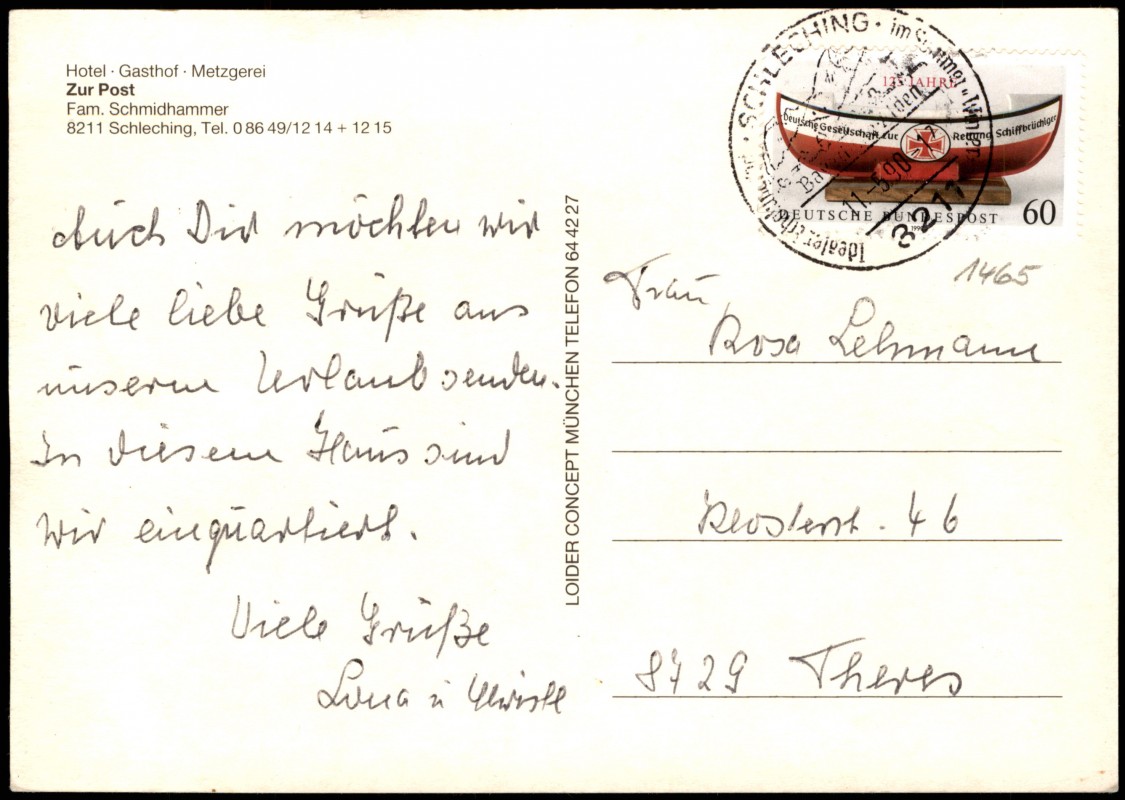 Hotel · Gasthof · Metzgerei
Zur Post
Fam. Schmidhammer
8211 Schleching, Tel. 0 86 49/12 14 + 12 15
Auch Dir möchten wir
viele liebe Grüße aus
unserem Urlaub senden.
In diesem Haus sind
wir einquartiert.
Viele Grüße
Lona u Christl
LOIDER CONCEPT MÜNCHEN TELEFON 64 42 27
SCHLECHING · im Sommer u. Winter
Idealer
11.-5.90 - 12
8211
125 JAHRE
Deutsche Gesellschaft zur Rettung Schiffbrüchiger
DEUTSCHE BUNDESPOST 60
1990
1465
Frau
Rosa Lehmann
Klosterstr. 46
8729 Theres